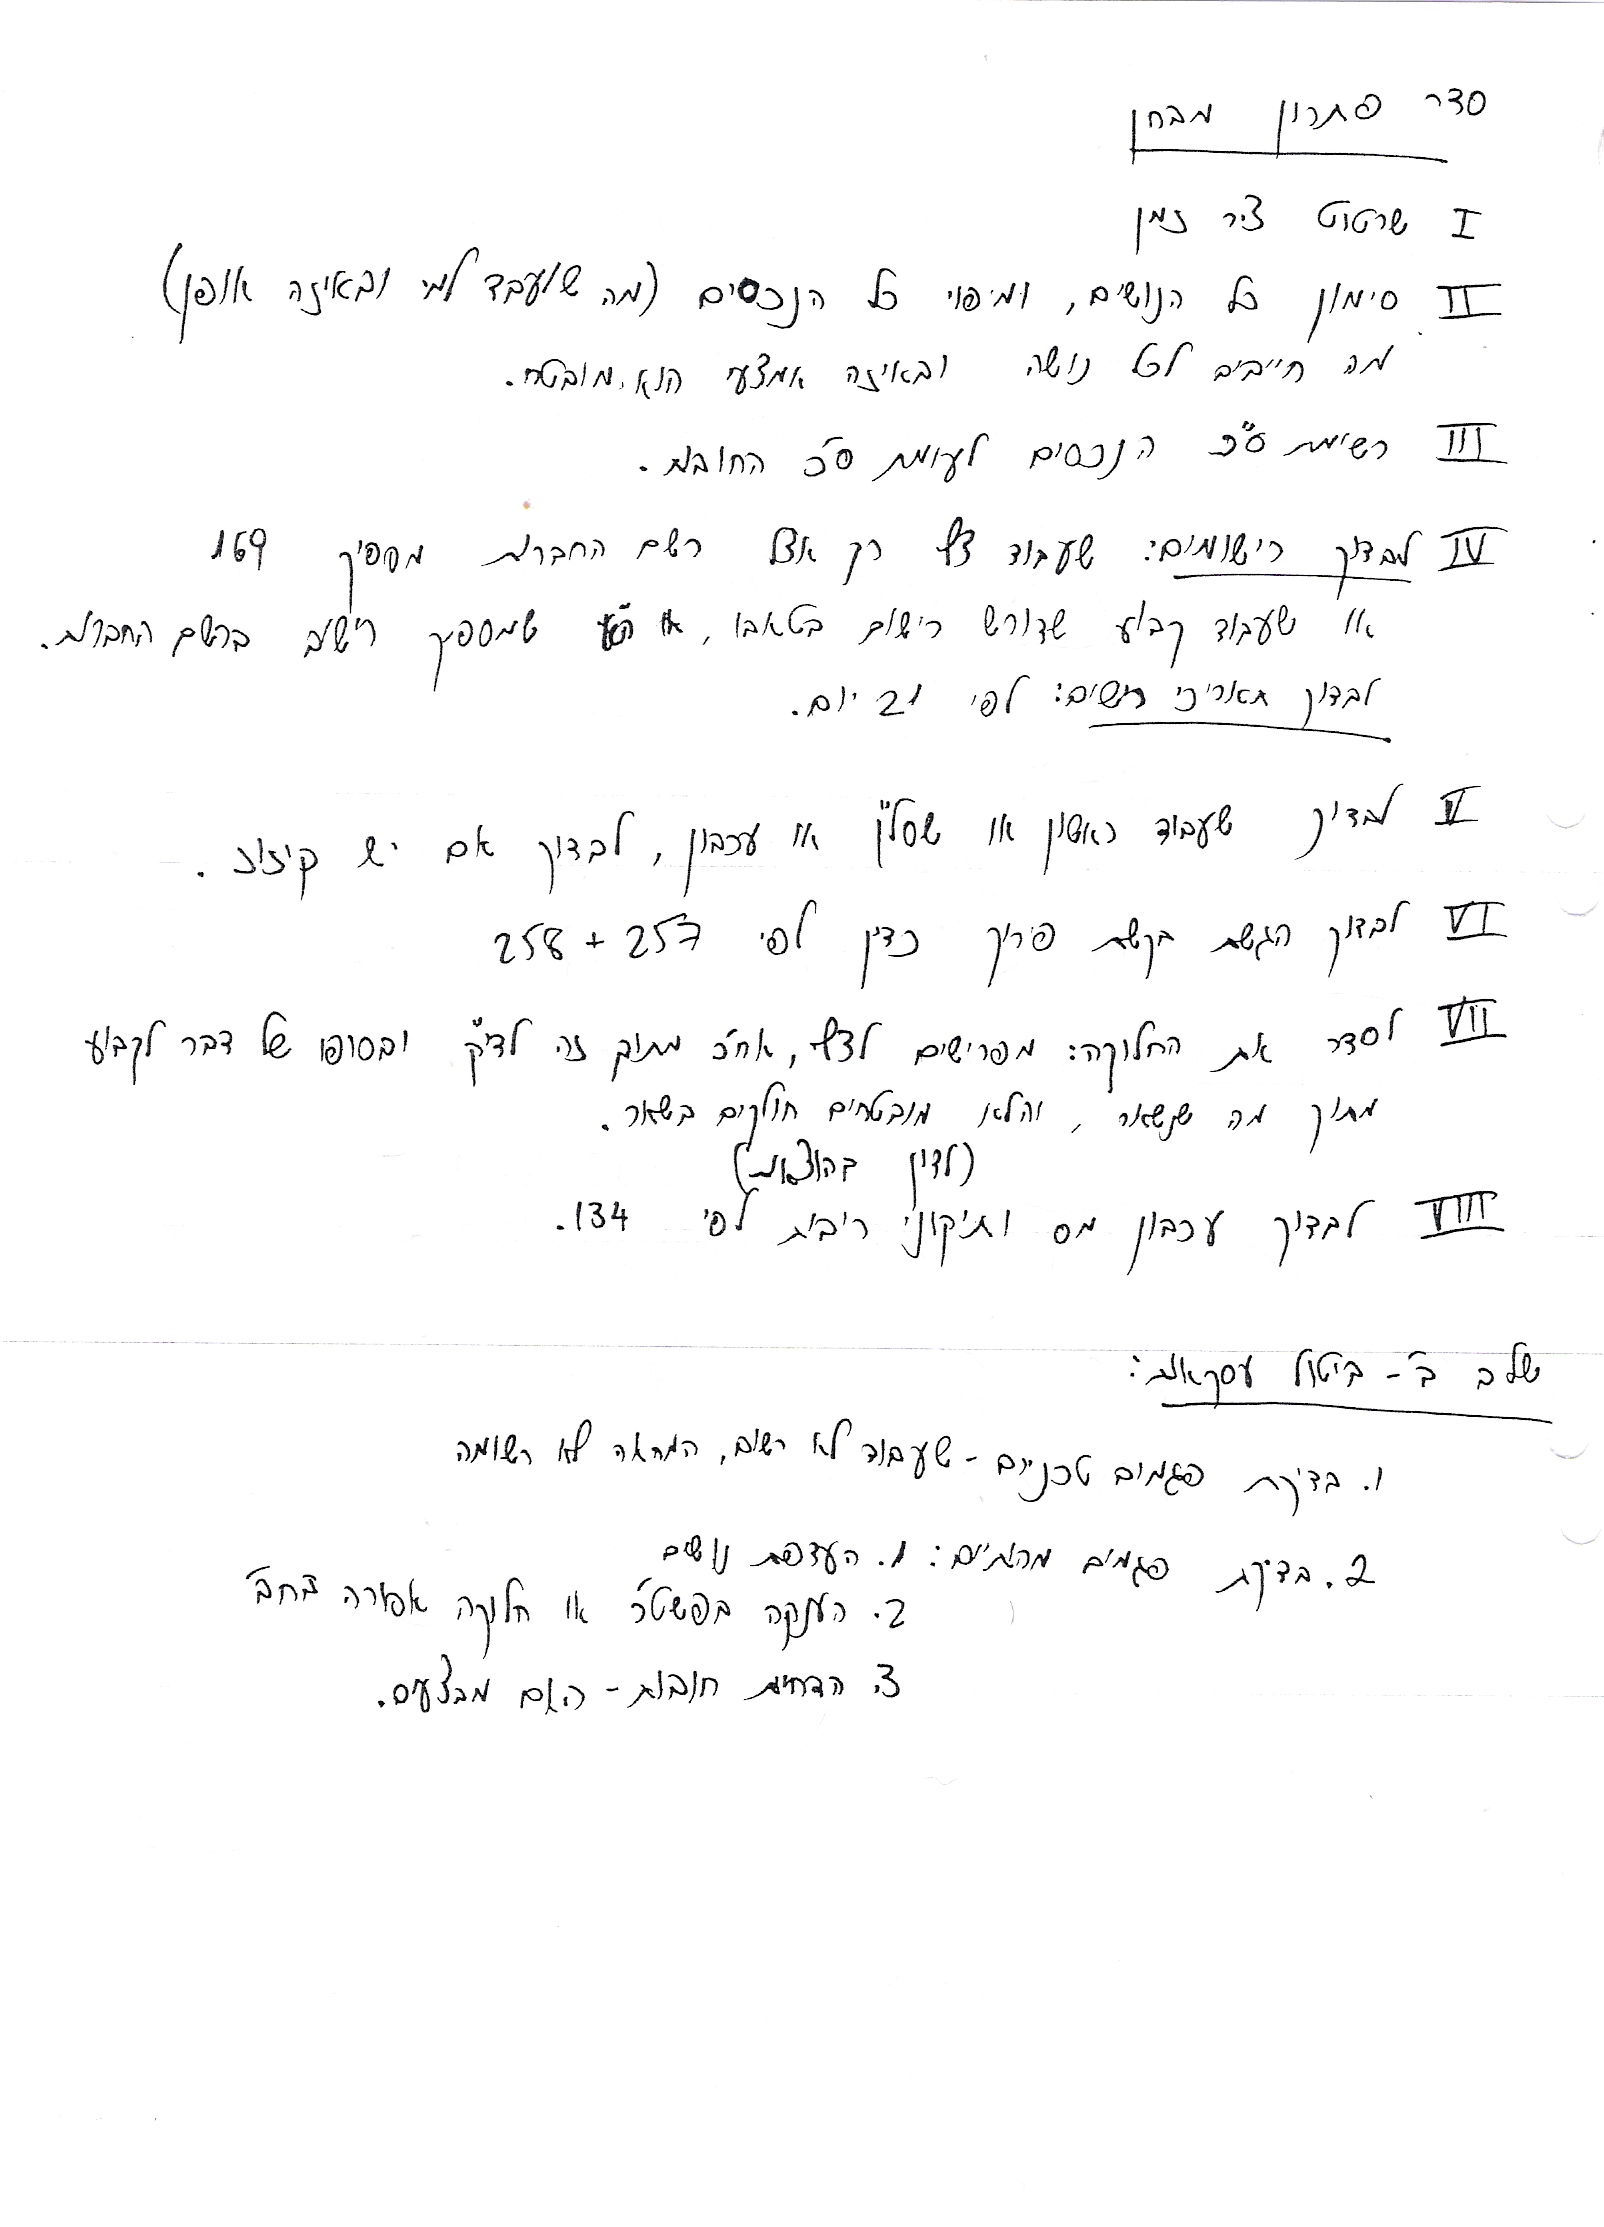 סדר פתרון מבחן
I שרטוט ציר זמן
II סימון כל הנושים, ומיפוי כל הנכסים (מה שועבד למי ובאיזה אופן)
מה חייבים לכל נושה ובאיזה אמצעי הוא מובטח.
III רשימת ס"כ הנכסים לעומת ס"כ החובות.
IV לבדוק רישומים: שעבוד צף רק אצל רשם החברות מספיק 169
או שעבוד קבוע שדורש רישום בטאבו, או שמספיק רישום ברשם החברות.
לבדוק תאריכי רישום: לפי 21 יום.
V לבדוק שעבוד ראשון או שסל"ן או עכבון, לבדוק אם יש קיזוז.
VI לבדוק הגשת בקשת פירוק כדין לפי 257 + 258
VII לסדר את החלוקה: מפרישים לצף, אח"כ מתוך זה לדי"ק ובסופו של דבר לקבוע
מתוך מה שנשאר, והלא מובטחים חולקים בשאר.
(לדון בהוצאות)
VIII לבדוק עכבון מס ותיקוני ריבית לפי 134.
שלב ב' - ביטול עסקאות:
1. בדיקת פגמים טכניים - שעבוד לא רשום, המחאה לא רשומה
2. בדיקת פגמים מהותיים: 1. העדפת נושים
2. הענקה בפשט"ר או חלוקה אסורה בחב'
3. הדחית חובות - האם מבצעים.